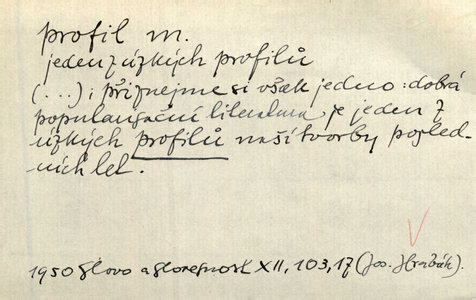 profil m.
jeden z úzkých profilů
(...); přiznejme si však jedno: dobrá
popularisační literatura je jeden z
úzkých profilů naší tvorby posled-
-ních let.
1950 Slovo a slovesnost XII, 103, 17 (Jos. Hrabák).